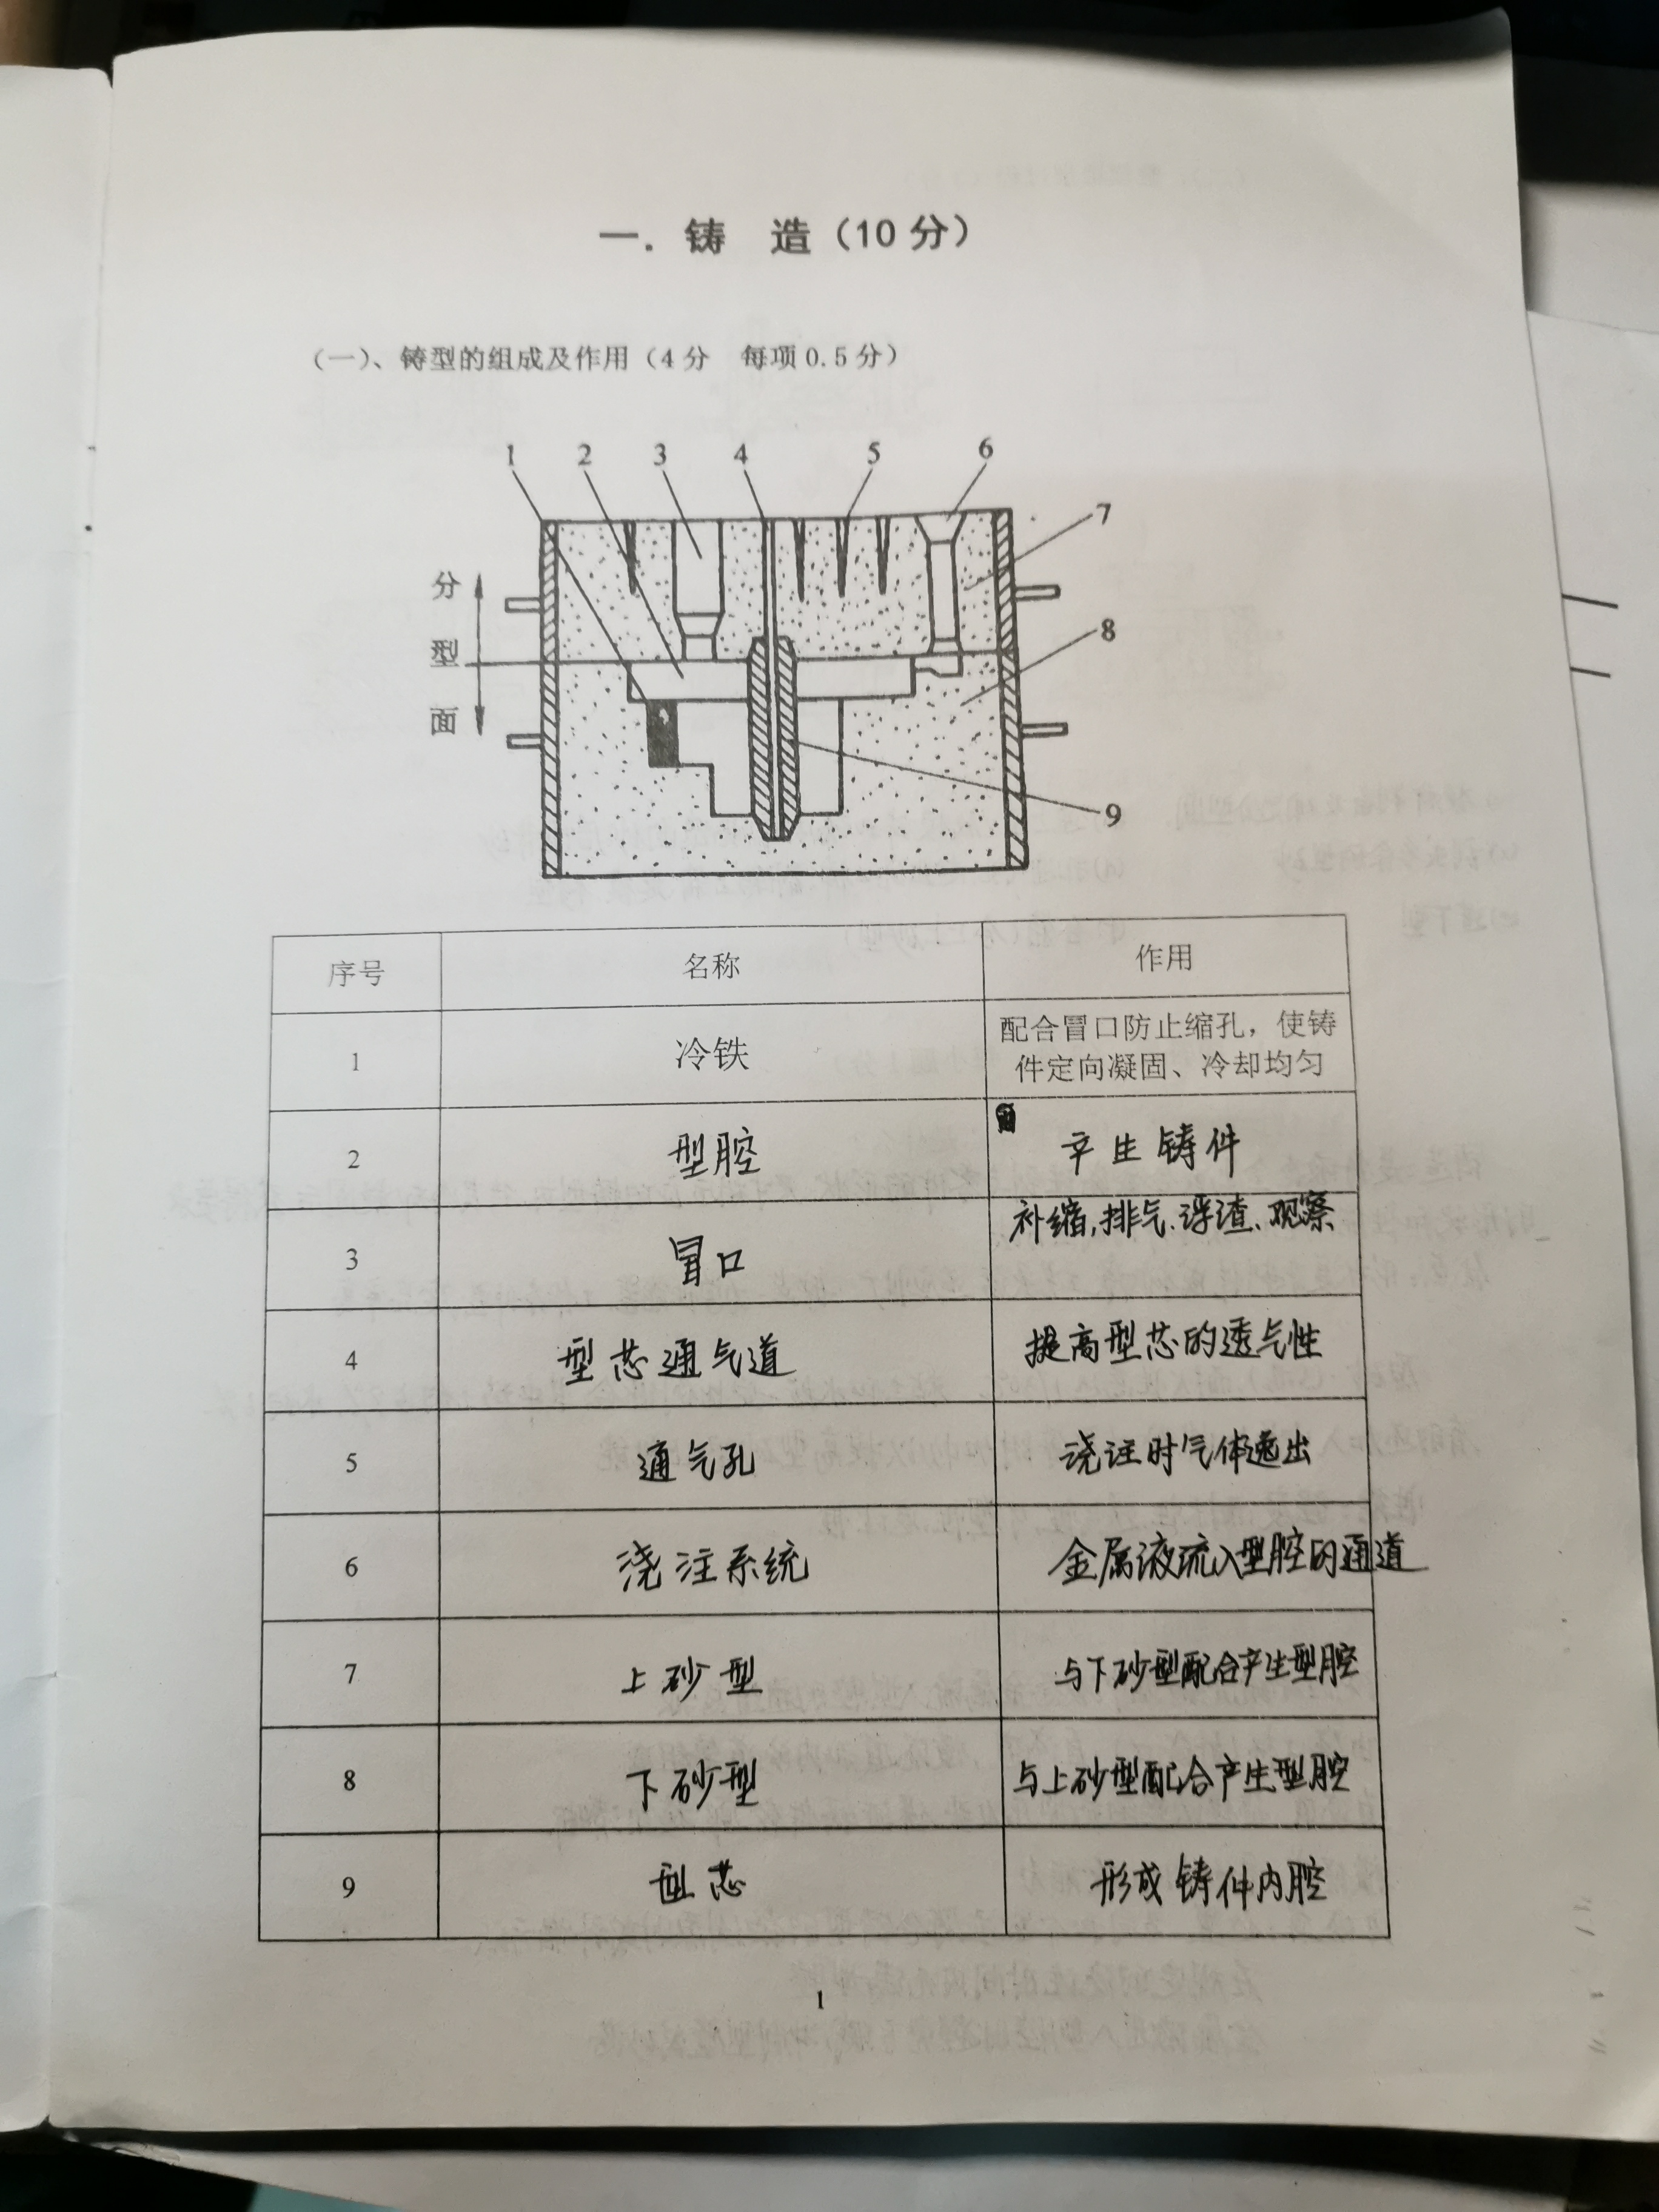 一. 铸 造（10 分）
（一）、铸型的组成及作用（4 分 每项 0.5 分）
1 2 3 4 5 6
7
8
9
分
型
面
序号 名称 作用
1 冷铁 配合冒口防止缩孔，使铸
件定向凝固、冷却均匀
2 型腔 产生铸件
3 冒口 补缩,排气、浮渣、观察
4 型芯通气道 提高型芯的透气性
5 通气孔 浇注时气体逸出
6 浇注系统 金属液流入型腔的通道
7 上砂型 与下砂型配合产生型腔
8 下砂型 与上砂型配合产生型腔
9 型芯 形成铸件内腔
1